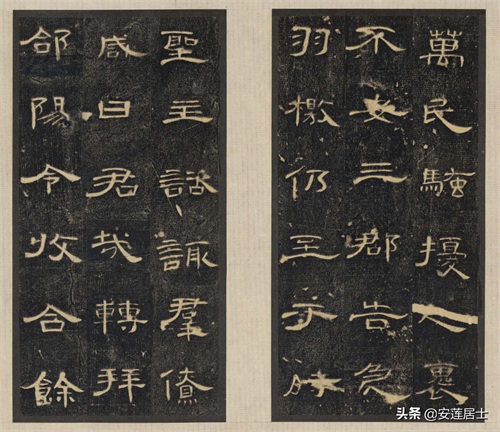 萬民騷擾人裹
不安三郡告急
羽檄仍至于時
聖主諮諏羣僚
咸曰君哉轉拜
郃陽令收合餘
头条 @安莲居士